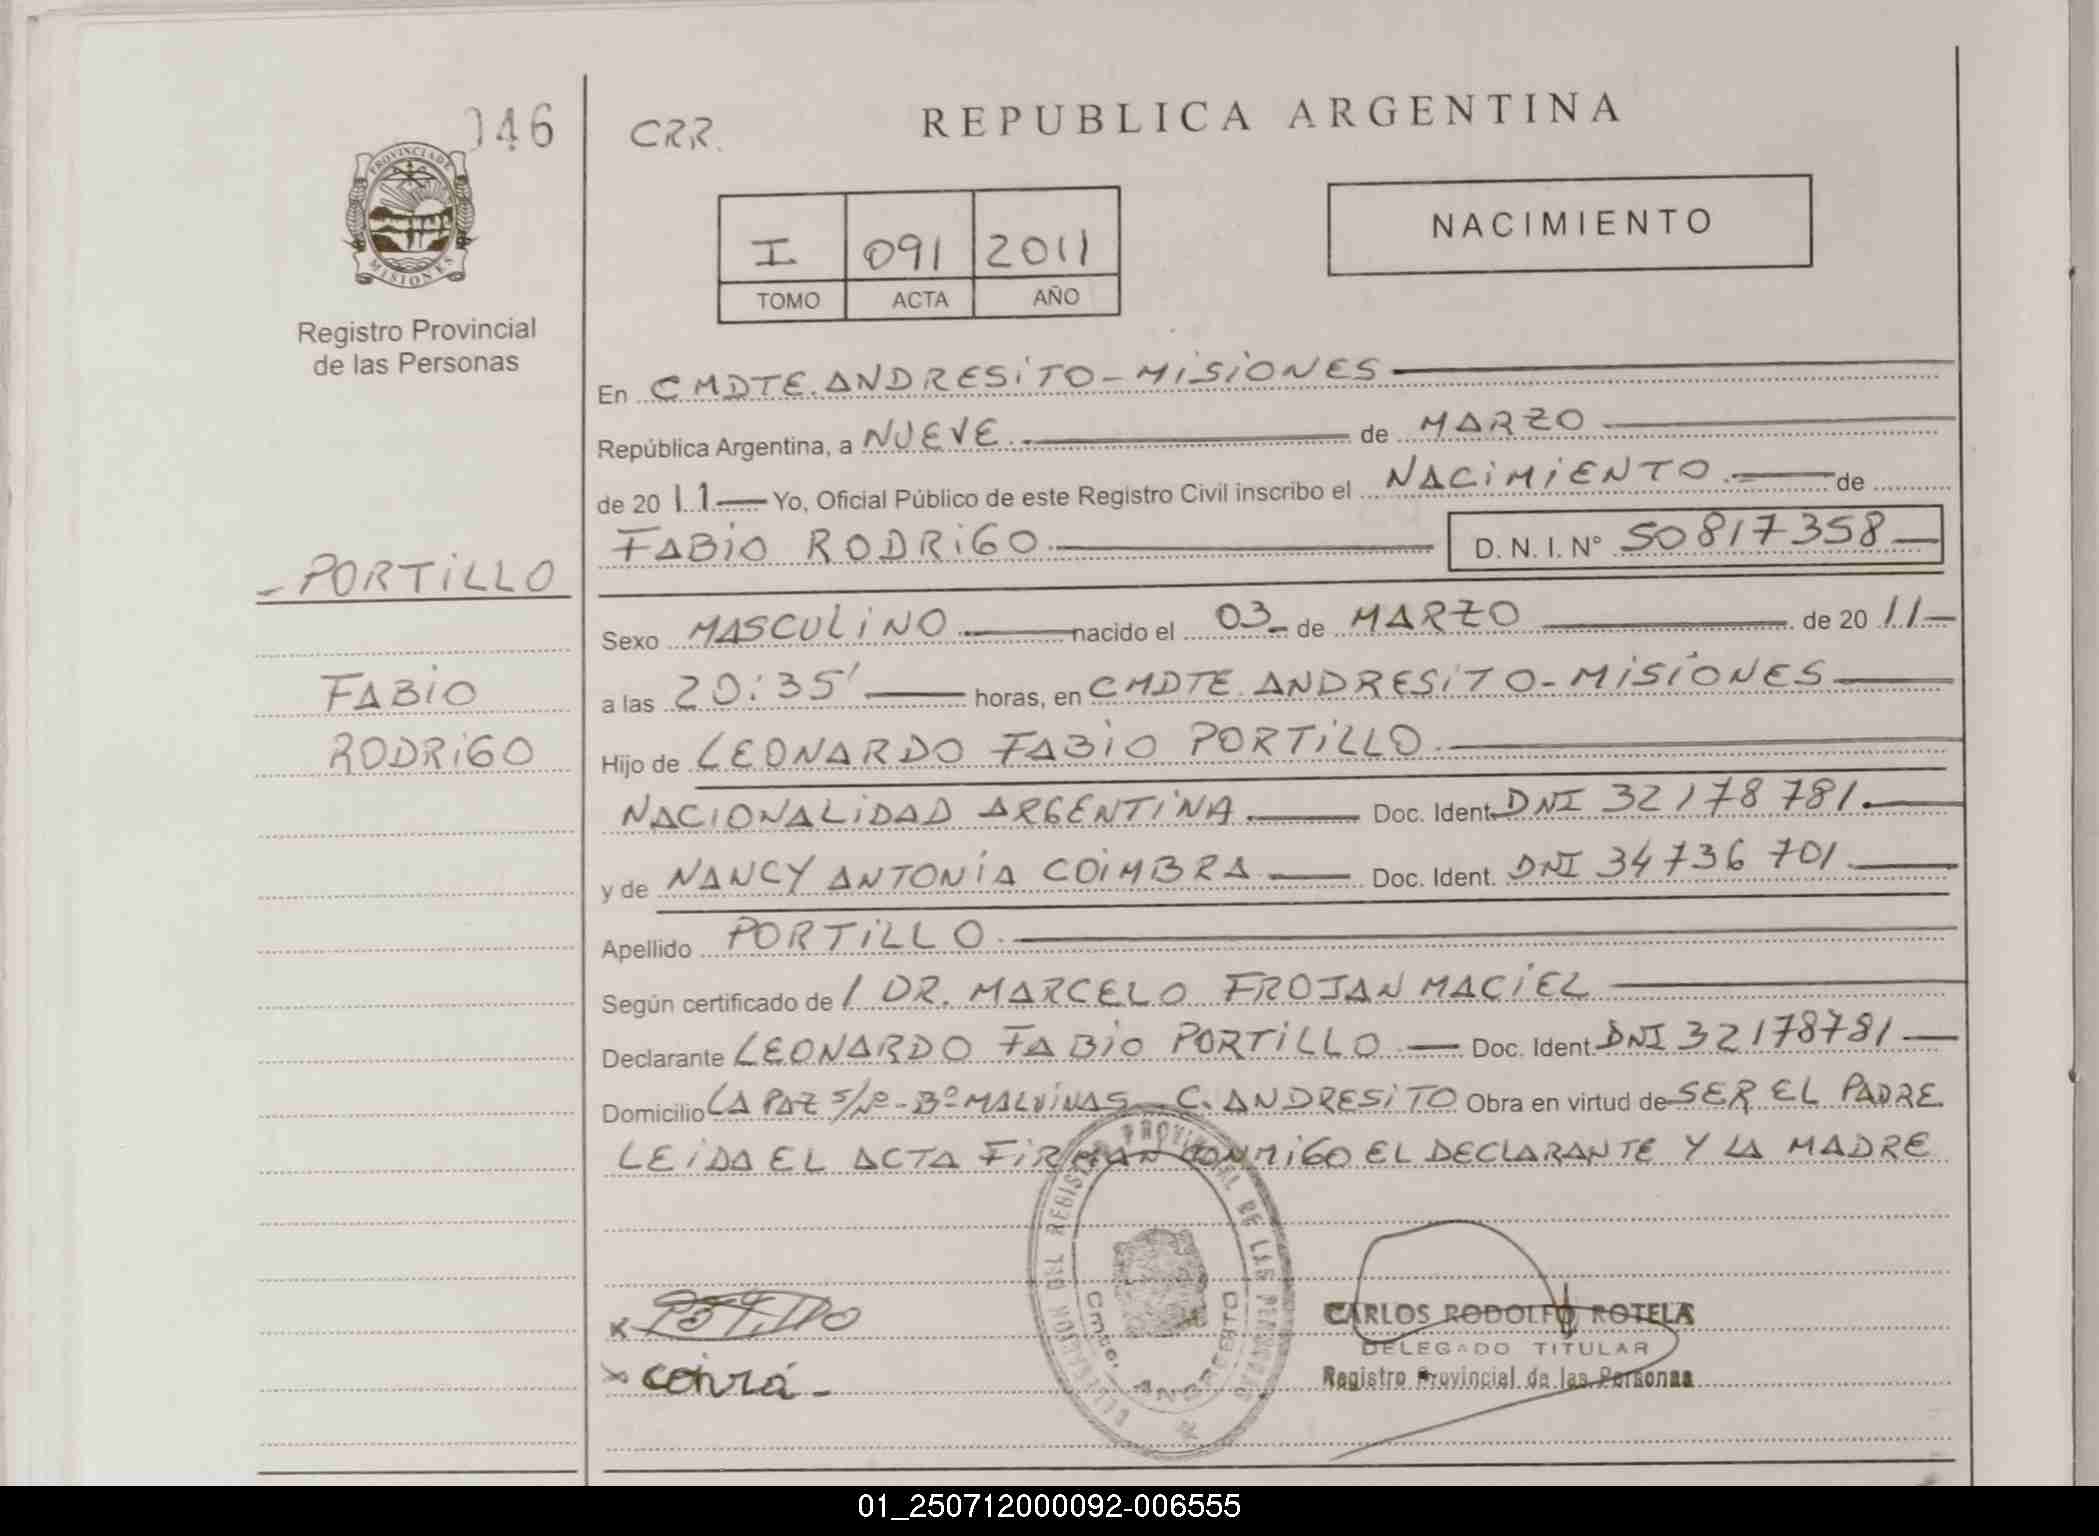 046
CRR.
REPUBLICA ARGENTINA
PROVINCIA DE
MISIONES
Registro Provincial
de las Personas
I 091 2011
TOMO ACTA AÑO
NACIMIENTO
En CMDTE. ANDRESiTO - MiSiONES
República Argentina, a NUEVE de MARZO
de 2011 Yo, Oficial Público de este Registro Civil inscribo el NACiMiENTO de
FABiO RODRiGO D. N. I. N° 50817358
PORTiLLO
FABiO
RODRiGO
Sexo MASCULiNO nacido el 03 de MARZO de 2011
a las 20:35' horas, en CMDTE. ANDRESiTO - MiSiONES
Hijo de LEONARDO FABiO PORTiLLO
NACIONALiDAD ARGENTiNA Doc. Ident. DNI 32178781
y de NANCY ANTONiA COiMBRA Doc. Ident. DNI 34736701
Apellido PORTiLLO
Según certificado de / DR. MARCELO FROJAN MACiEL
Declarante LEONARDO FABiO PORTiLLO Doc. Ident. DNI 32178781
Domicilio LA PAZ S/Nº - Bº MALViNAS - C. ANDRESiTO Obra en virtud de SER EL PADRE
LEiDA EL ACTA FiRMAN CONMiGO EL DECLARANTE Y LA MADRE
DELEGACION DEL REGISTRO PROVINCIAL DE LAS PERSONAS
Cmdte. ANDRESITO
CARLOS RODOLFO ROTELA
DELEGADO TITULAR
Registro Provincial de las Personas
01_250712000092-006555